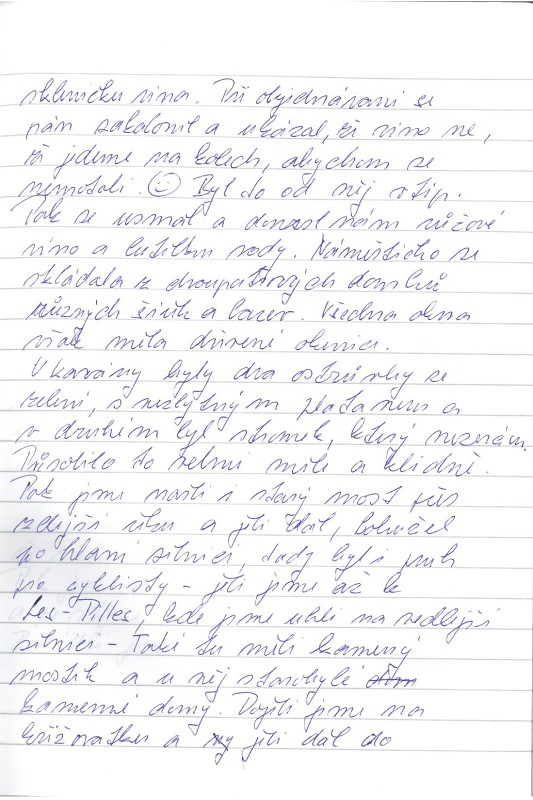 skleničku vína. Při objednávání se
pán zaklonil a ukázal, že víno ne,
že jdeme na kolech, abychom se
nemotali. ☺ Byl to od něj vtip.
Pak se usmál a donesl nám růžové
víno a lahev vody. Náměstíčko se
skládalo z dvoupatrových domků
různých šířek a barev. Všechna okna
však měla dřevěné okenice.
U kavárny byly dva ostrůvky se
zelení, s nezbytným platanem a
v druhém byl stromek, který neznám.
Působilo to velmi mile a klidně.
Pak jsme našli i starý most přes
zdejší řeku a jeli dál, bohužel
po hlavní silnici, tady byl i pruh
pro cyklisty – jeli jsme až k
Les-Pilles, kde jsme uhli na vedlejší
silnici – Také tu měli kamenný
mostík a u něj starobylé
kamenné domy. Dojeli jsme na
křižovatku a jeli dál do